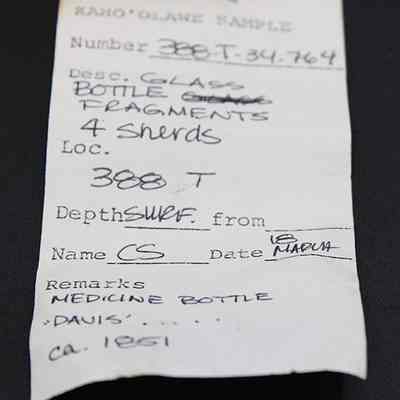 KAHO'OLAWE SAMPLE
Number 388-T-34.764
Desc. GLASS
BOTTLE
FRAGMENTS
4 sherds
Loc.
388 T
Depth SURF. from
Name CS Date 18 MARCH
Remarks
MEDICINE BOTTLE
'DAVIS' . . . . .
ca. 1851